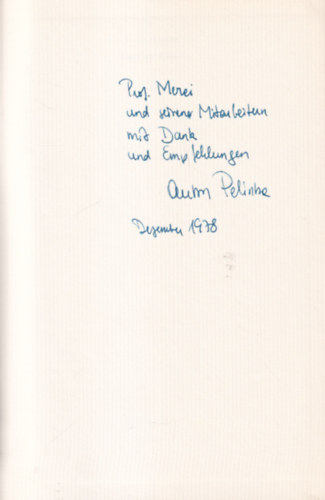 Prof. Merei
und seinen Mitarbeitern
mit Dank
und Empfehlungen
Anton Pelinka
Dezember 1978